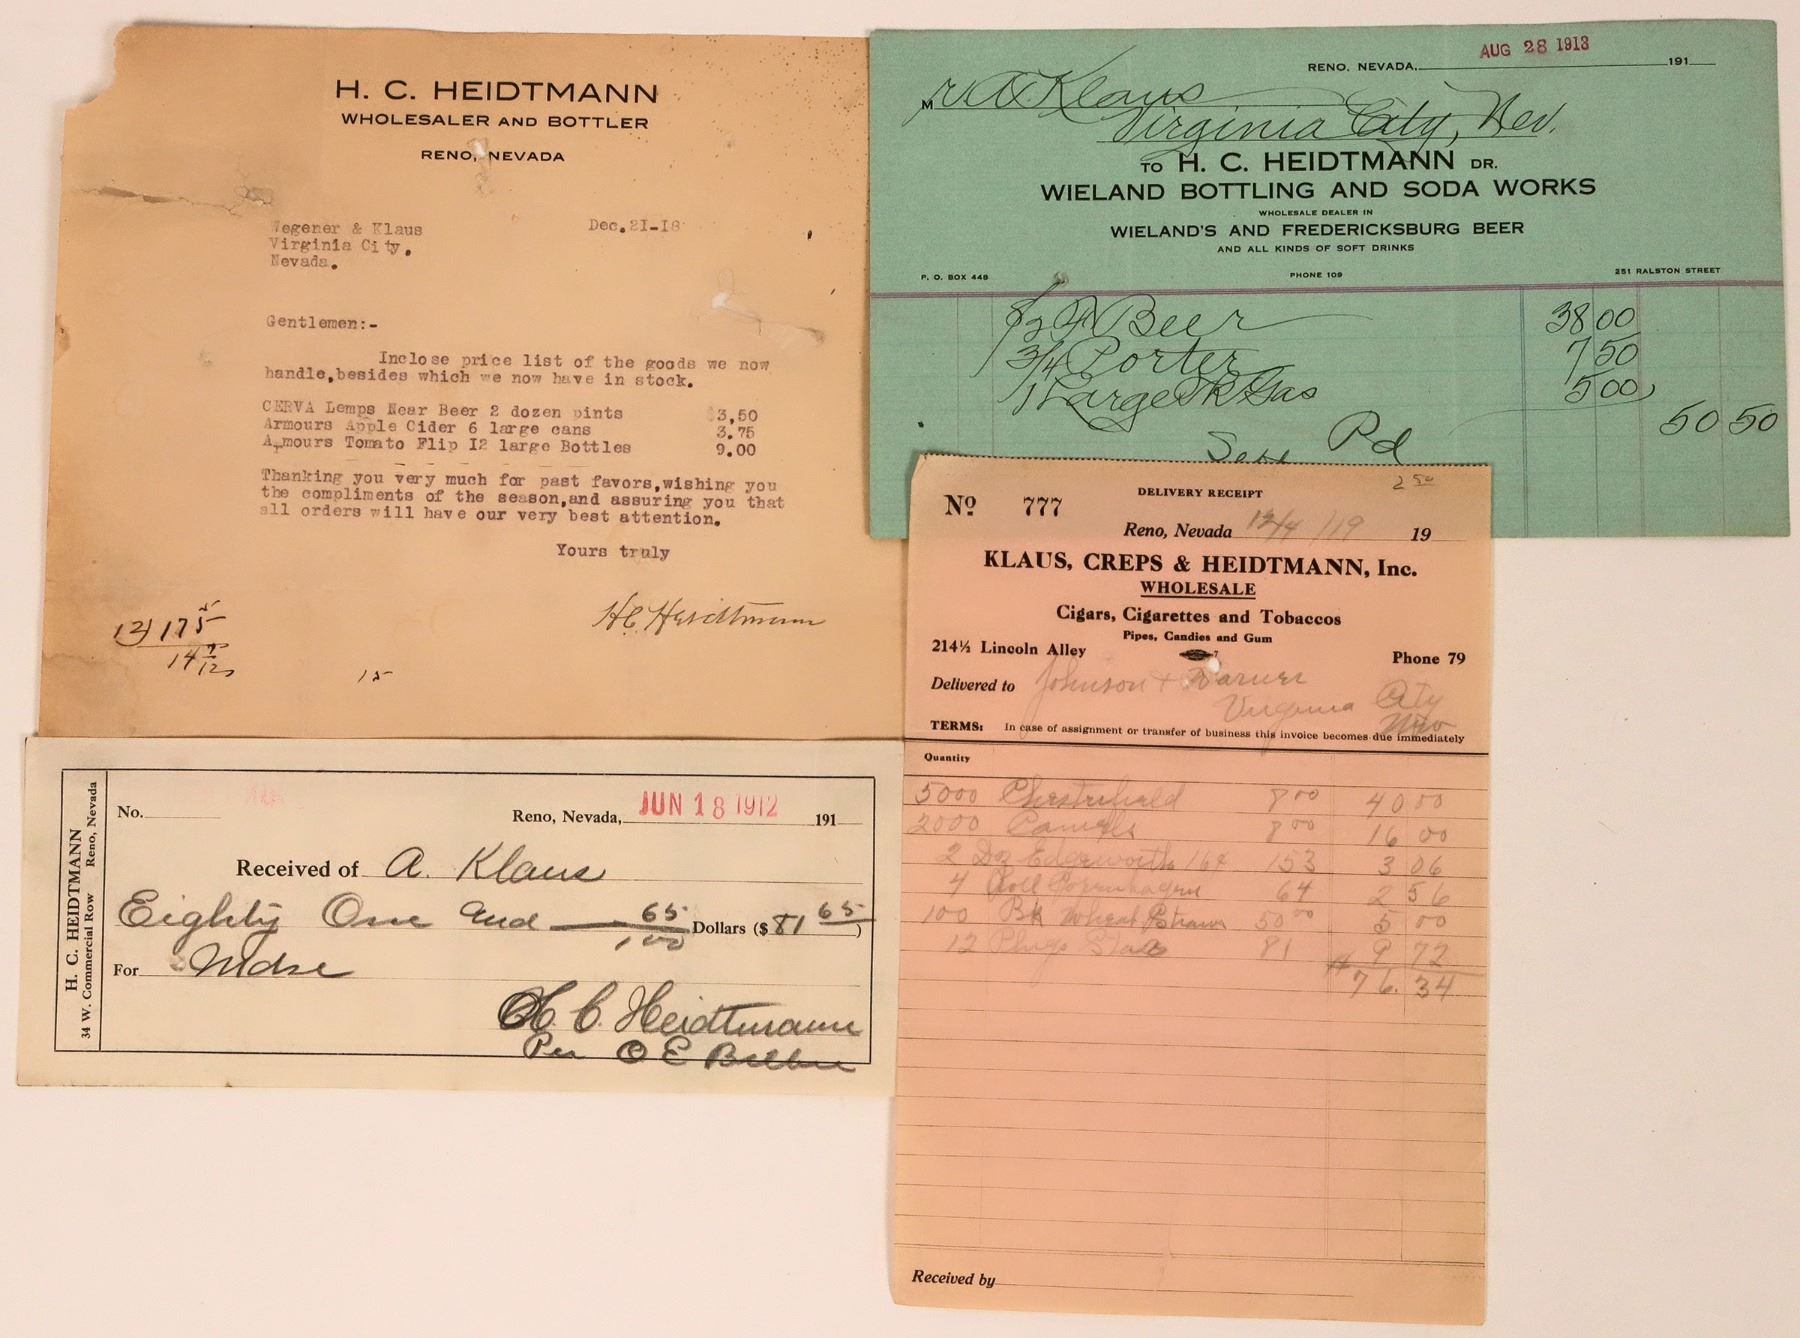 H. C. HEIDTMANN
WHOLESALER AND BOTTLER
RENO, NEVADA
Wegener & Klaus
Virginia City,
Nevada.
Dec.21-18
Gentlemen:-
Inclose price list of the goods we now
handle,besides which we now have in stock.
CERVA Lemps Near Beer 2 dozen pints $3,50
Armours Apple Cider 6 large cans 3.75
Armours Tomato Flip I2 large Bottles 9.00
Thanking you very much for past favors,wishing you
the compliments of the season,and assuring you that
all orders will have our very best attention.
Yours truly
H.C. Heidtmann
12) 175
14 7/12
15
RENO, NEVADA, AUG 28 1913 191
Mr A Klaus
Virginia City, Nev.
TO H. C. HEIDTMANN DR.
WIELAND BOTTLING AND SODA WORKS
WHOLESALE DEALER IN
WIELAND'S AND FREDERICKSBURG BEER
AND ALL KINDS OF SOFT DRINKS
P. O. BOX 448 PHONE 109 251 RALSTON STREET
Beer 38 00
3/4 Porter 7 50
1 Large Gas 5 00
50 50
Pd
No. Reno, Nevada, JUN 18 1912 191
Received of A. Klaus
Eighty One and 65/100 Dollars ($ 81 65)
For Mdse
H. C. Heidtmann
Per O E
H. C. HEIDTMANN
34 W. Commercial Row Reno, Nevada
2 50
No 777 DELIVERY RECEIPT
Reno, Nevada 12/4/19 19
KLAUS, CREPS & HEIDTMANN, Inc.
WHOLESALE
Cigars, Cigarettes and Tobaccos
Pipes, Candies and Gum
214½ Lincoln Alley Phone 79
Delivered to Johnson + Warner
Virginia City
Nev
TERMS: In case of assignment or transfer of business this invoice becomes due immediately
Quantity
5000 Chesterfield 8 00 40 00
2000 Camels 8 00 16 00
2 Doz Edgeworth 16¢ 153 3 06
4 Roll Copenhagen 64 2 56
100 Bk Wheat Straws 50 00 5 00
12 Plugs Star 81 9 72
# 76.34
Received by